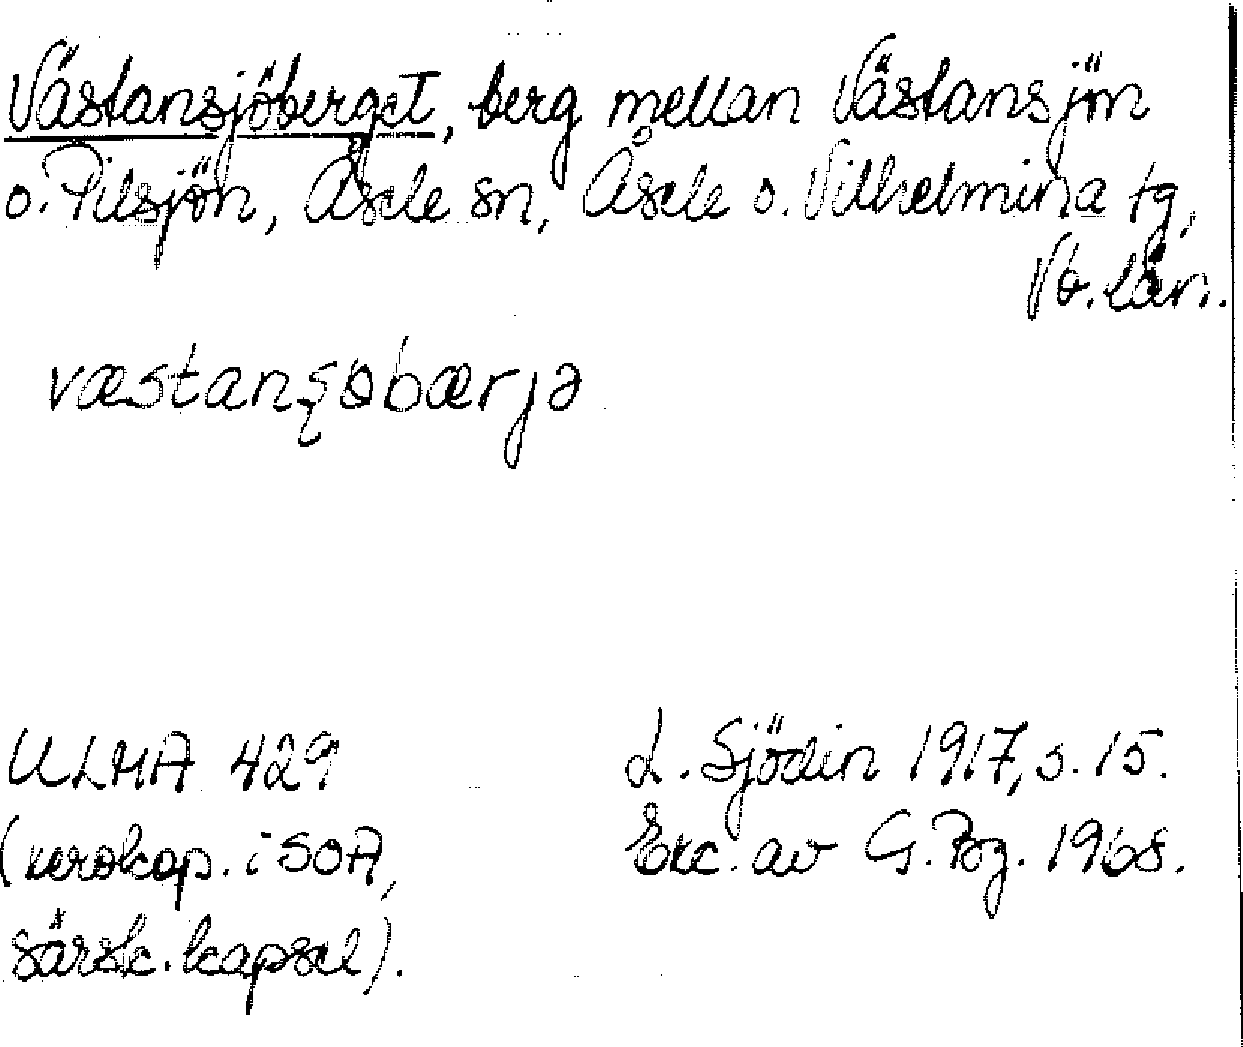 Västansjöberget, berg mellan Västansjön
o. Pilsjön, Åsele sn, Åsele o. Vilhelmina tg,
Vb. län.
væstanʂɵbærjə
ULMA 429
L. Sjödin 1917, s. 15.
(xerokop. i SOA,
Exc. av G. Pbg. 1968.
särsk. kapsel).